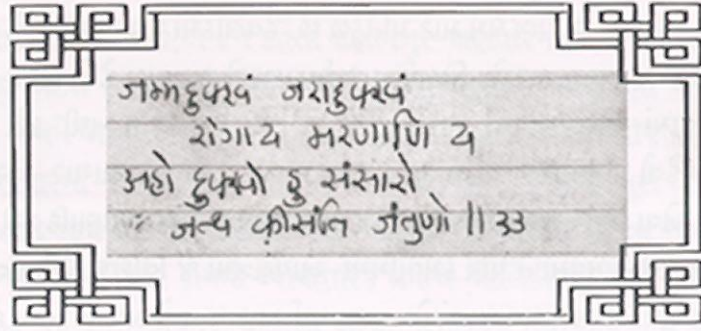 जम्मदुक्खं जरादुक्खं
रोगाय मरणाणि य
अहो दुक्खो हु संसारो
जत्थ कीसंति जंतुणो ॥ ३३